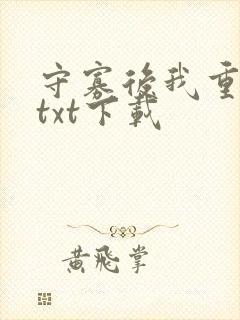 守寡後我重
txt下載
黃飛掌